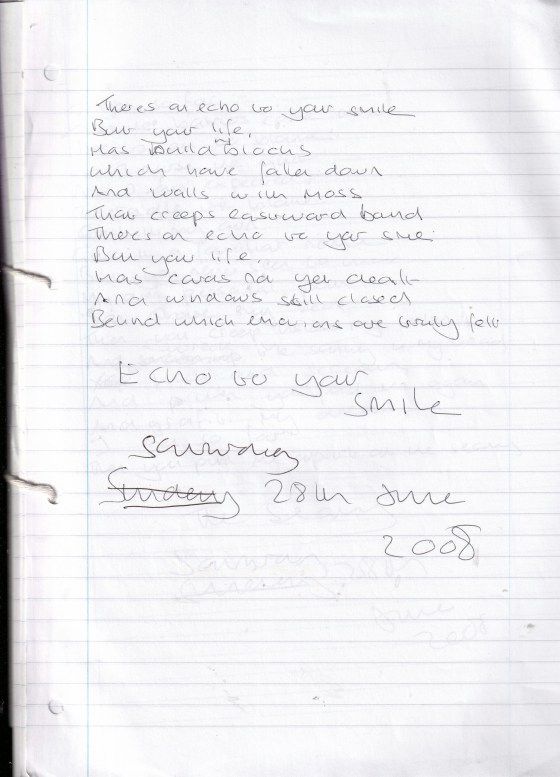 There's an echo to your smile
But your life,
Has build blocks
which have fallen down
And walls with moss
That creeps eastward bound
There's an echo to your smile
But your life,
Has cards na yet dealt
And windows still closed
Behind which emotions are truly felt
Echo to your
smile
Saturday
Sunday 28th June
2008